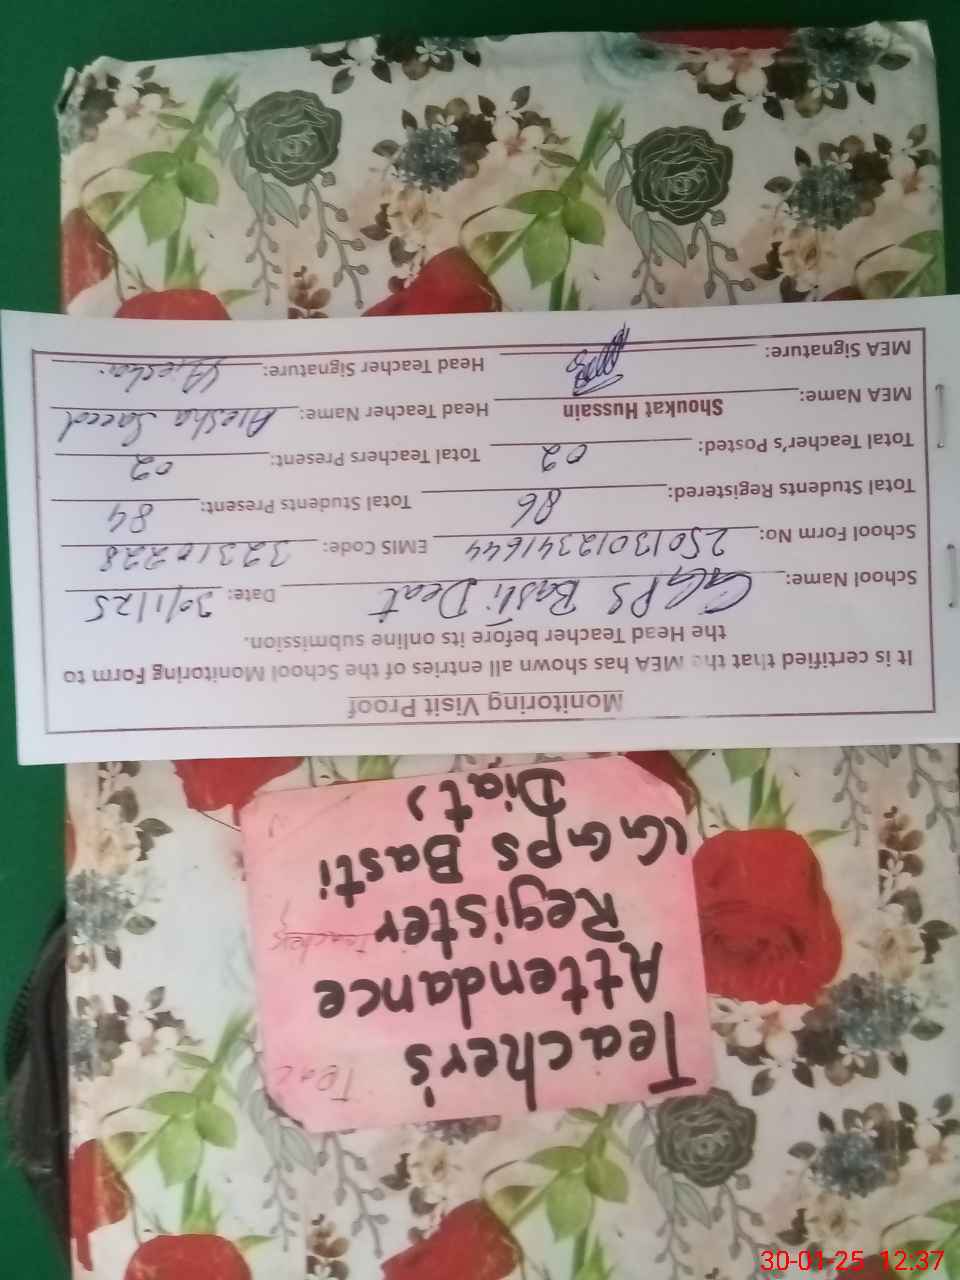 Monitoring Visit Proof
It is certified that the MEA has shown all entries of the School Monitoring Form to
the Head Teacher before its online submission.
School Name: GGPS Basti Deat Date: 30/1/25
School Form No: 25013012341644 EMIS Code: 32310228
Total Students Registered: 86 Total Students Present: 84
Total Teacher's Posted: 02 Total Teachers Present: 02
MEA Name: Shoukat Hussain Head Teacher Name: Aiesha Saeed
MEA Signature: Head Teacher Signature: Aiesha
Teacher's
Attendance
Register
(GGPS Basti
Diat)
Teac
Teachers
30-01-25 12:37